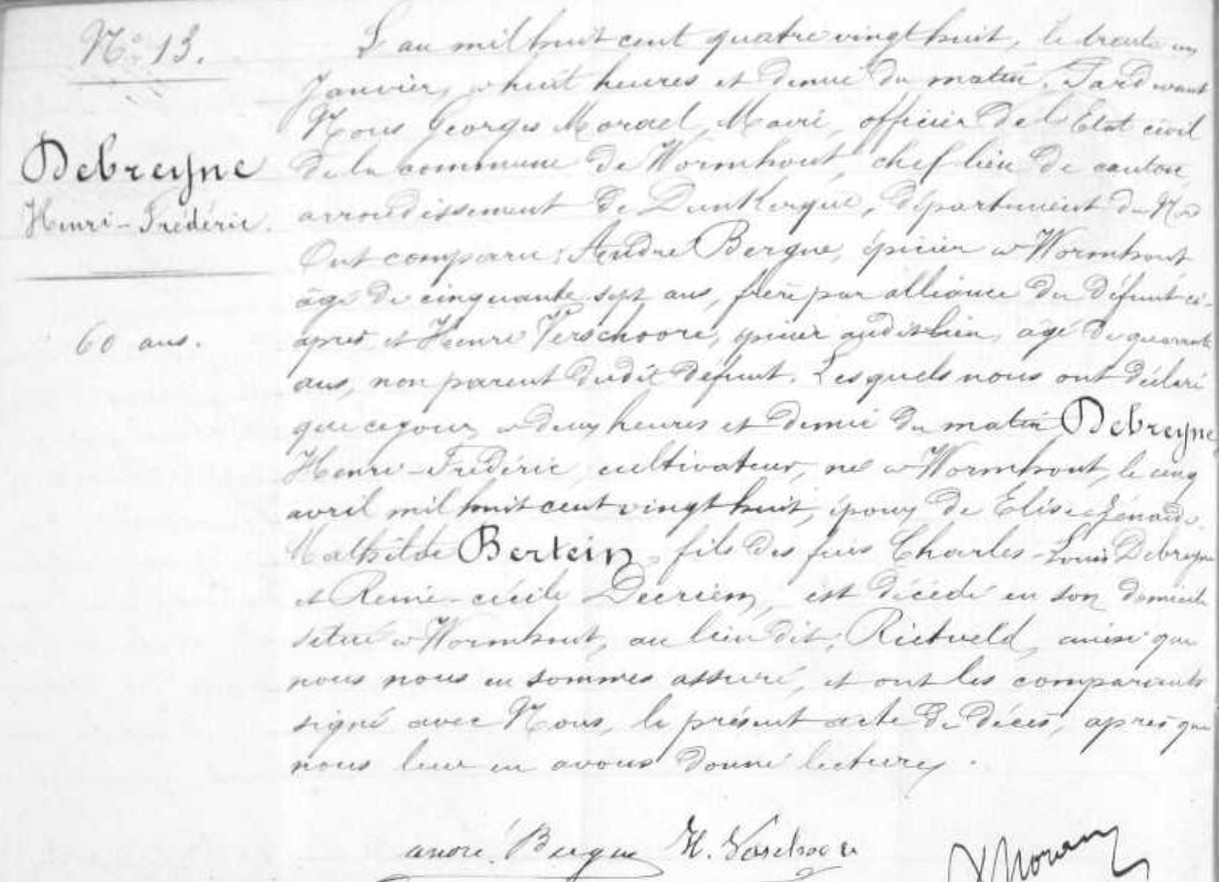 N° 13.
Debreyne
Henri-Frédéric.
60 ans.
L'an mil huit cent quatre vingt huit, le trente un
Janvier, à huit heures et demie du matin. Pardevant
Nous Georges Morael, Maire, officier de l'Etat civil
de la commune de Wormhout, chef lieu de canton,
arrondissement de Dunkerque, département du Nord
Ont comparu: André Bergue, épicier à Wormhout
âgé de cinquante sept ans, frère par alliance du défunt ci-
après, et Henri Verschoore, épicier audit lieu, âgé de quarante
ans, non parent dudit défunt. Lesquels nous ont déclaré
que ce jour, à deux heures et demie du matin Debreyne
Henri-Frédéric, cultivateur, né à Wormhout, le cinq
avril mil huit cent vingt huit, époux de Elise
Mathilde Bertein, fils des feus Charles-Louis Debreyne
et Reine-cécile Decriem, est décédé en son domicile
situé à Wormhout, au lieu dit; Rietveld, ainsi que
nous nous en sommes assuré, et ont les comparants
signé avec Nous, le présent acte de décès, après que
nous leur en avons donné lecture.
andré. Bergue H. Verschoore